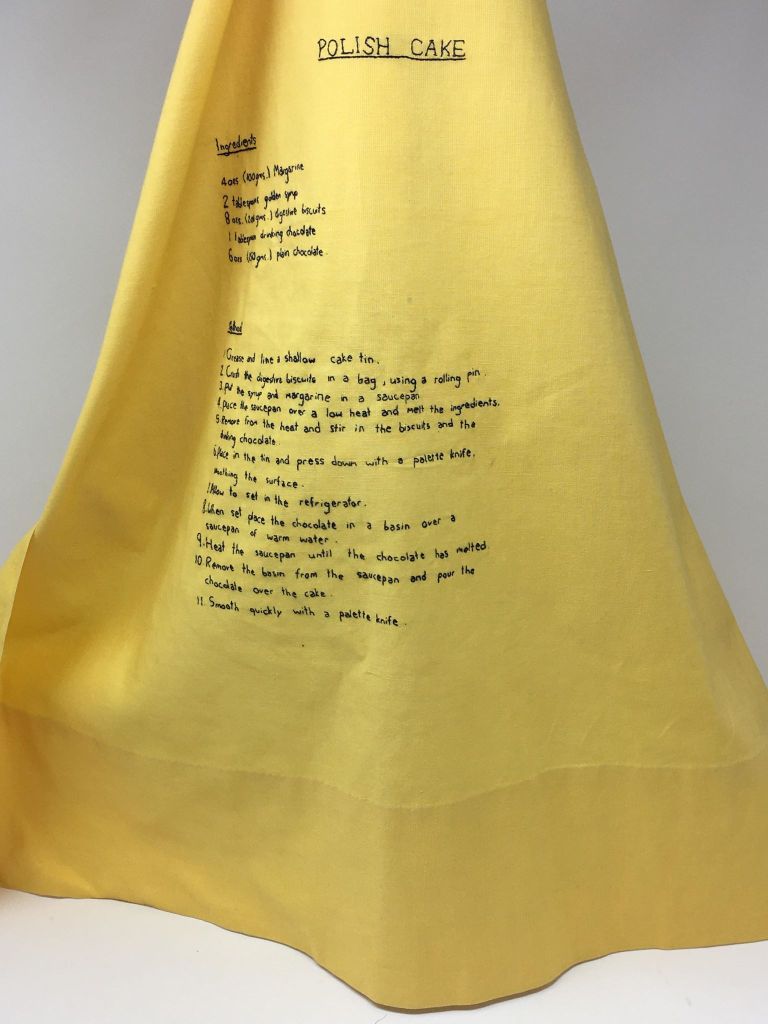 POLISH CAKE
Ingredients
4ozs (100gms.) Margarine
2 tablespoons golden syrup
8 ozs. ( digestive biscuits
1 tablespoon drinking chocolate
6ozs (150gms.) plain chocolate.
Method
1 Grease and line a shallow cake tin.
2. Crush the digestive biscuits in a bag, using a rolling pin.
3. Put the syrup and margarine in a saucepan
4. place the saucepan over a low heat and melt the ingredients.
5. Remove from the heat and stir in the biscuits and the
drinking chocolate.
6 Place in the tin and press down with a palette knife,
the surface.
7. Allow to set in the refrigerator.
8. When set place the chocolate in a basin over a
saucepan of warm water.
9. Heat the saucepan until the chocolate has melted.
10. Remove the basin from the saucepan and pour the
chocolate over the cake.
11. Smooth quickly with a palette knife.